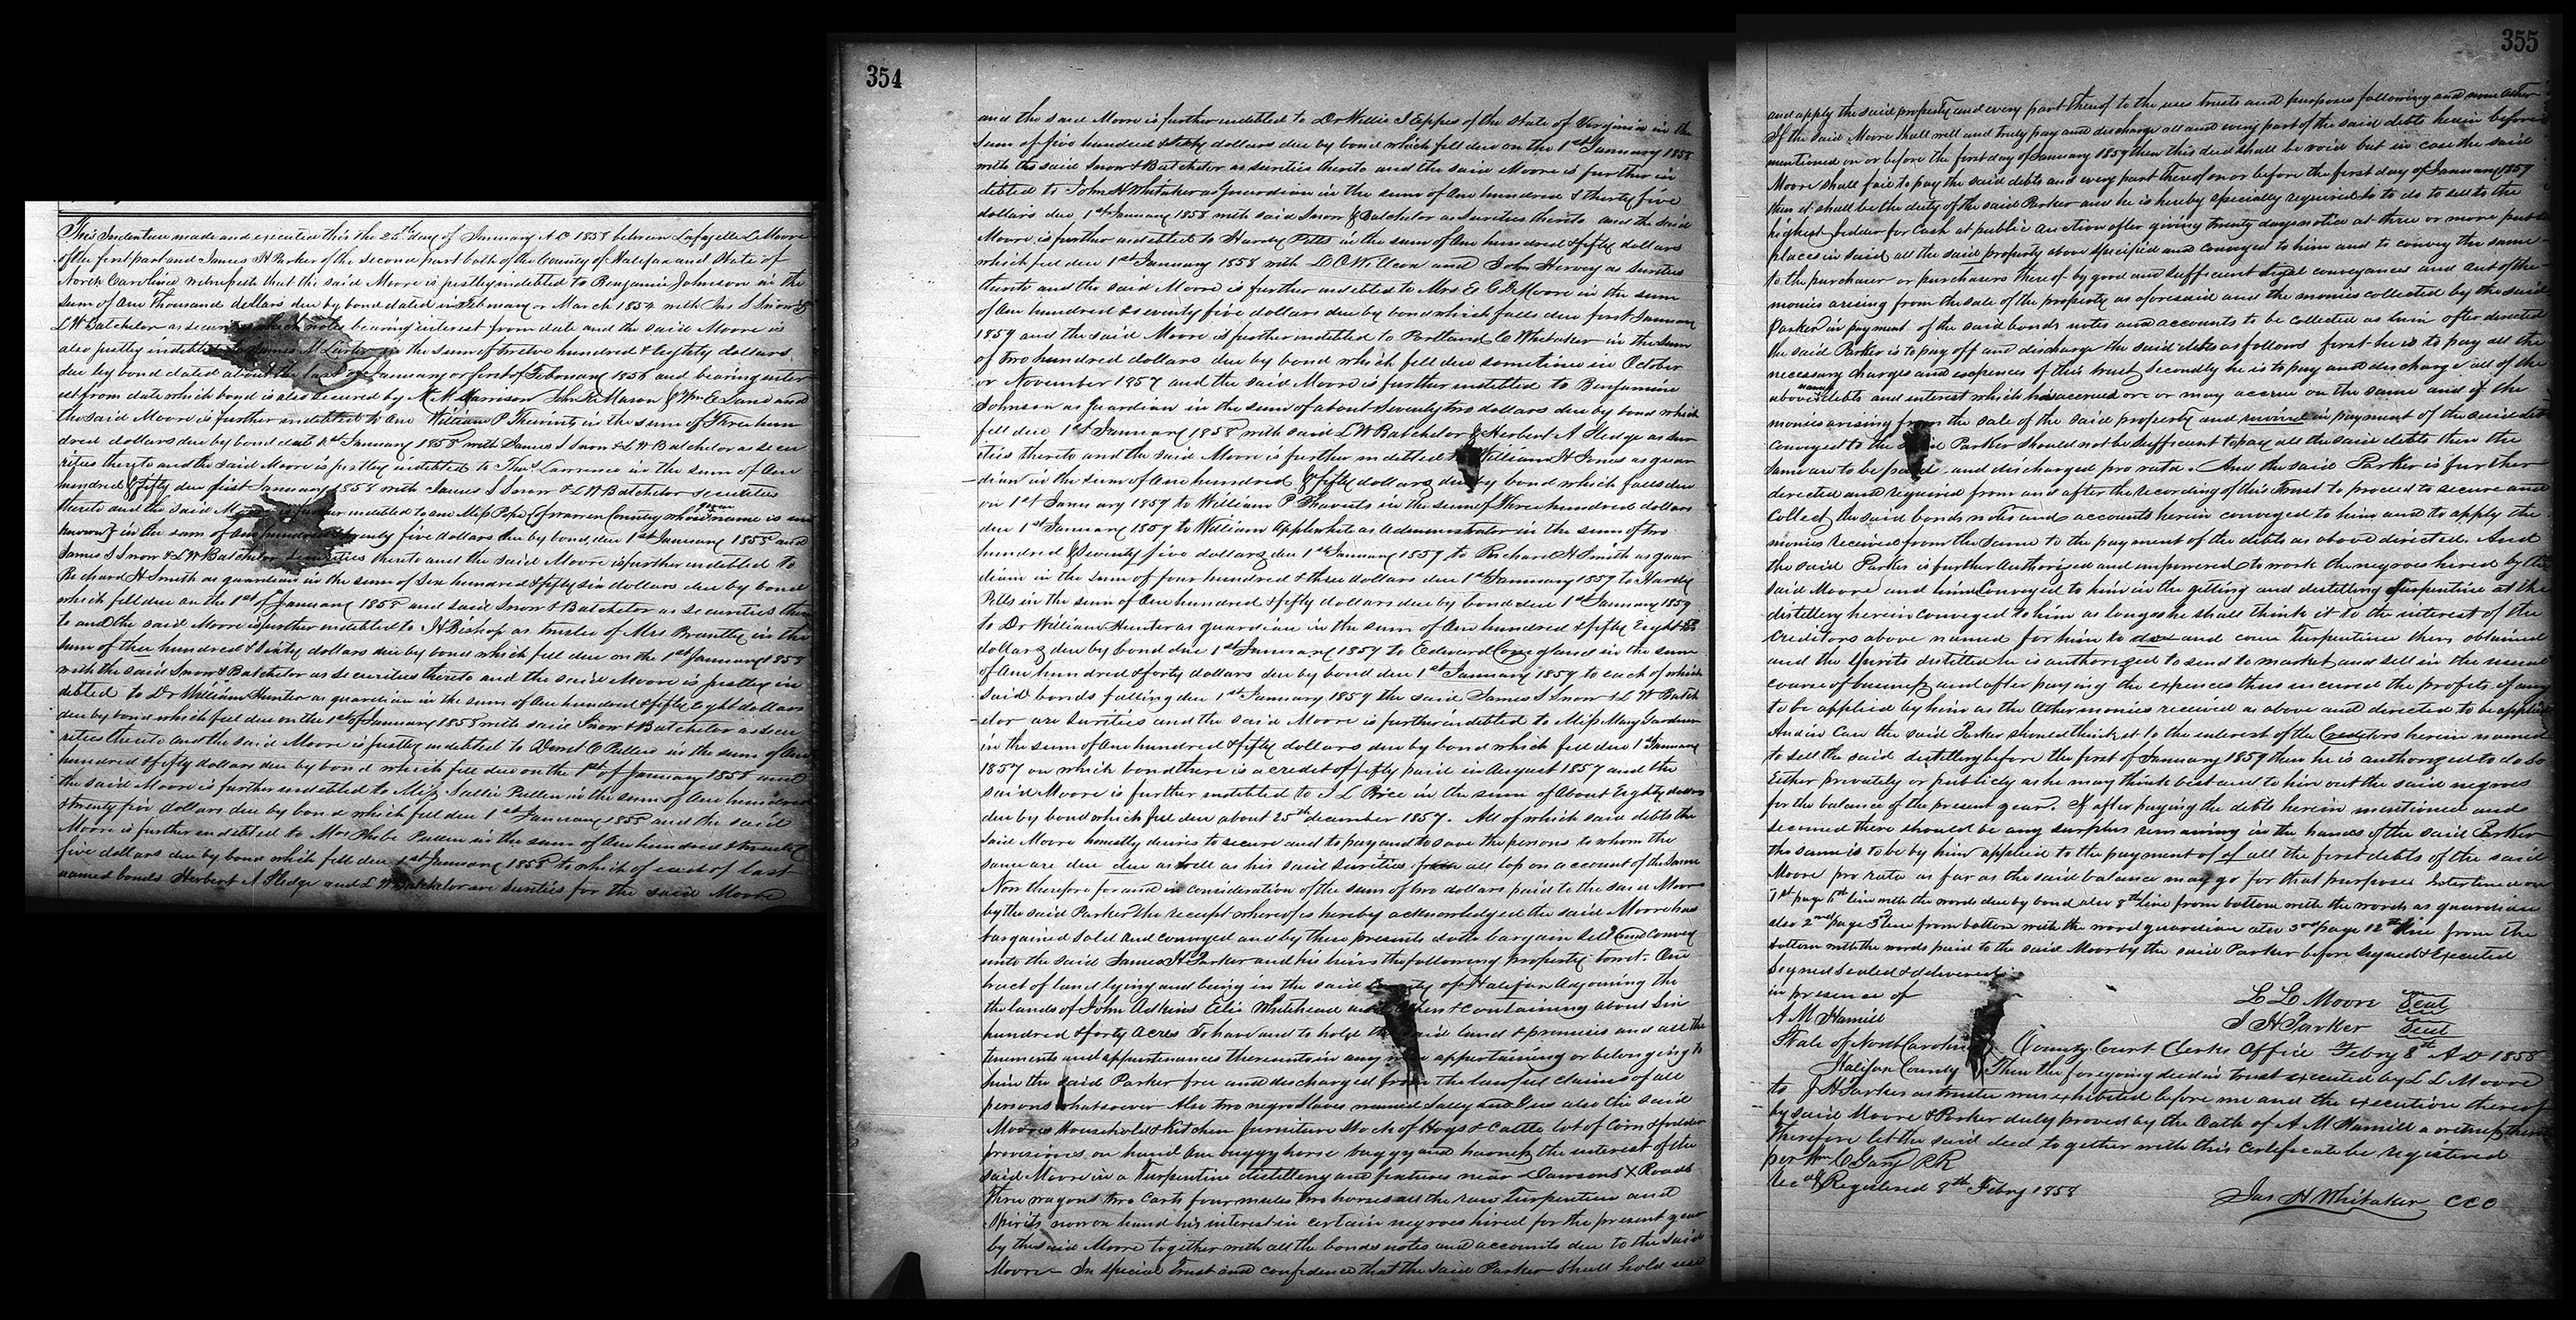 This Indenture made and executed this the 25th day of January A D 1858 between Lafayette L Moore
of the first part and James H Parker of the second part both of the County of Halifax and State of
North Carolina witnesseth that the said Moore is justly indebted to Benjamin Johnson in the
Sum of One thousand dollars due by bond dated in February or March 1854 with Jas S Snow &
L W Batchelor as securities which notes bearing interest from date and the said Moore is
also justly indebted to James M in the Sum of twelve hundred & Eighty dollars
due by bond dated about the last of January or first of February 1856 and bearing inter
est from date which bond is also secured by John R Mason & Wm E Lane and
the said Moore is further indebted to One William P in the Sum of Three hun
dred dollars due by bond 1st January 1858 with James S Snow & L W Batchelor as secu
rities thereto and the said Moore is justly indebted to Thos Lawrence in the sum of One
hundred & fifty due first January 1858 with James S Snow & L W Batchelor securities
thereto and the said Moore is further indebted to one Miss Pope of Warren County whose given name is un
known in the sum of One hundred & twenty five dollars due by bond due 1st January 1858 and
James S Snow & L W Batchelor securities thereto and the said Moore is further indebted to
Richard H Smith as guardian in the sum of Six hundred & fifty six dollars due by bond
which fell due on the 1st of January 1858 and said Snow & Batchelor as securities there
to and the said Moore is further indebted to H Bishop as trustee of Mrs Brantly in the
Sum of three hundred & Sixty dollars due by bond which fell due on the 1st January 1858
with the said Snow & Batchelor as securities thereto and the said Moore is justly in
debted to Dr William Hunter as guardian in the sum of One hundred & fifty Eight dollars
due by bond which fell due on the 1st of January 1858 with said Snow & Batchelor as secu
rities thereto and the said Moore is justly indebted to C Pullen in the sum of One
hundred & fifty dollars due by bond which fell due on the 1st of January 1858 and
the said Moore is further indebted to Miss Sallie Pullen in the sum of One hundred
& twenty five dollars due by bond which fell due 1st January 1858 and the said
Moore is further indebted to Mrs Phebe Pullen in the sum of One hundred & twenty
five dollars due by bond which fell due 1st January 1858 to which of each of last
named bonds Herbert A Sledge and L W Batchelor are surities for the said Moore
354
and the said Moore is further indebted to Dr Willis J Eppes of the State of Virginia in the
Sum of five hundred & sixty dollars due by bond which fell due on the 1st January 1858
with the said Snow & Batchelor as surities thereto and the said Moore is further in
debted to John H Whitaker as Guardian in the sum of One hundred & thirty five
dollars due 1st January 1858 with said Snow & Batchelor as Surities thereto and the said
Moore is further indebted to Hardy Pitts in the sum of One hundred & fifty dollars
which fell due 1st January 1858 with and John Hervey as Surities
thereto and the said Moore is further indebted to Mrs E C D Moore in the sum
of One hundred & seventy five dollars due by bond which falls due first January
1859 and the said Moore is further indebted to Portland C Whitaker in the Sum
of two hundred dollars due by bond which fell due sometime in October
or November 1857 and the said Moore is further indebted to Benjamin
Johnson as Guardian in the sum of about Seventy two dollars due by bond which
fell due 1st January 1858 with said L W Batchelor & Herbert A Sledge as sur
ities thereto and the said Moore is further indebted to William H Jones as guar
dian in the sum of One hundred & fifty dollars due by bond which falls due
on 1st January 1859 to William P in the sum of Three hundred dollars
due 1st January 1859 to William Applewhite as Administrator in the sum of two
hundred & Seventy five dollars due 1st January 1859 to Richard H Smith as guar
dian in the sum of four hundred & three dollars due 1st January 1859 to Hardy
Pitts in the sum of One hundred & fifty dollars due by bond due 1st January 1859
to Dr William Hunter as guardian in the sum of One hundred & fifty Eight
dollars due by bond due 1st January 1859 to Edward Conigland in the sum
of One hundred & forty dollars due by bond due 1st January 1859 to each of which
said bonds falling due 1st January 1859 the said James S Snow & L W Batch
elor are Surities and the said Moore is further indebted to Miss Mary Gardner
in the sum of One hundred & fifty dollars due by bond which fell due 1st January
1857 on which bond there is a credit of fifty paid in August 1857 and the
said Moore is further indebted to J L Price in the sum of About Eighty dollars
due by bond which fell due about 25th december 1857. All of which said debts the
said Moore honestly desires to secure and to pay and to save the persons to whom the
same are due due as well as his said surities from all loss on account of the same
Now therefore for and in consideration of the sum of two dollars paid to the said Moore
by the said Parker the receipt whereof is hereby acknowledged the said Moore has
bargained sold and conveyed and by these presents doth bargain sell and convey
unto the said James H Parker and his heirs the following property towit. One
tract of land lying and being in the said County of Halifax Adjoining the
the lands of John Adkins Elie Whitehead and others & containing about Six
hundred & forty Acres To have and to hold the said land & premises and all the
tenements and appurtenances thereunto in any wise appertaining or belonging to
him the said Parker free and discharged from the lawful claims of all
persons whatsoever Also two negro slaves named Sally and also the said
Moores Household & Kitchen furniture Stock of Hogs & Cattle lot of Corn & fodder
provisions on hand One buggy horse buggy and harness the interest of the
said Moore in a Turpentine distillery and fixtures near Dawsons X Roads
Three wagons two Carts four mules two horses all the raw Turpentine and
Spirits now on hand his interest in certain negroes hired for the present year
by the said Moore together with all the bonds notes and accounts due to the said
Moore - In special Trust and confidence that the said Parker shall hold use
355
and apply the said property and every part thereof to the uses trusts and purposes following and none other
If the said Moore shall well and truly pay and discharge all and every part of the said debts herein before
mentioned on or before the first day of January 1859 then this deed shall be void but in case the said
Moore shall fail to pay the said debts and every part thereof on or before the first day of January 1859
then it shall be the duty of the said Parker and he is hereby specially required to to do to sell to the
highest bidder for Cash at public auction after giving twenty days notice at three or more public
places in said all the said property above specified and conveyed to him and to convey the same
to the purchaser or purchasers thereof by good and sufficient legal conveyances and out of the
monies arising from the sale of the property as aforesaid and the monies collected by the said
Parker in payment of the said bonds notes and accounts to be collected as herein after directed
the said Parker is to pay off and discharge the said debts as follows first he is to pay all the
necessary charges and expences of this trust Secondly he is to pay and discharge all of the
above named debts and interest which has accrued or may accrue on the same and if the
monies arising from the sale of the said property and received in payment of the said debts
conveyed to the said Parker should not be sufficient to pay all the said debts then the
same are to be paid and discharged pro rata. And the said Parker is further
directed and required from and after the recording of this Trust to proceed to secure and
Collect the said bonds notes and accounts herein conveyed to him and to apply the
monies received from the same to the payment of the debts as above directed. And
the said Parker is further Authorized and empowered to work the negroes hired by the
said Moore and himd Conveyed to him in the getting and distilling Turpentine at the
distillery herein conveyed to him as long as he shall think it to the interest of the
Creditors above named for him to do and Turpentine then obtained
and the Spirits distilled he is authorized to send to market and sell in the usual
course of business and after paying the expences thus incured the profits if any
to be applied by him as the Other monies received as above and directed to be applied
And in Case the said Parker should think it to the interest of the Creditors herein named
to sell the said distillery before the first of January 1859 then he is authorized to do so
Either privately or publicly as he may think best and to hire out the said negroes
for the balance of the present year. If after paying the debts herein mentioned and
secured there should be any surplus remaining in the hands of the said Parker
the same is to be by him applied to the payment of of all the first debts of the said
Moore pro rata as far as the said balance may go for that purpose Interlined on
1st page 6th line with the words due by bond also 8th line from bottom with the words as guardian
also 2nd page 3d line from bottom with the word guardian also 3rd page 12th line from the
bottom with the words paid to the said Moore by the said Parker before signed & Executed
Signed Sealed & delivered
in presence of
A M Hamill
L L Moore Seal
J H Parker Seal
State of North Carolina County Court Clerks Office Febry 8th A D 1858
Halifax County Then the foregoing deed in trust executed by L L Moore
to J H Parker as trustee was exhibited before me and the execution thereof
by said Moore & Parker duly proved by the Oath of A M Hamill a witness thereto
Therefore let the said deed together with this Certificate be registered
per Wm C Gary P R
Rec & Registered 8th Febry 1858
Jas H Whitaker CCC